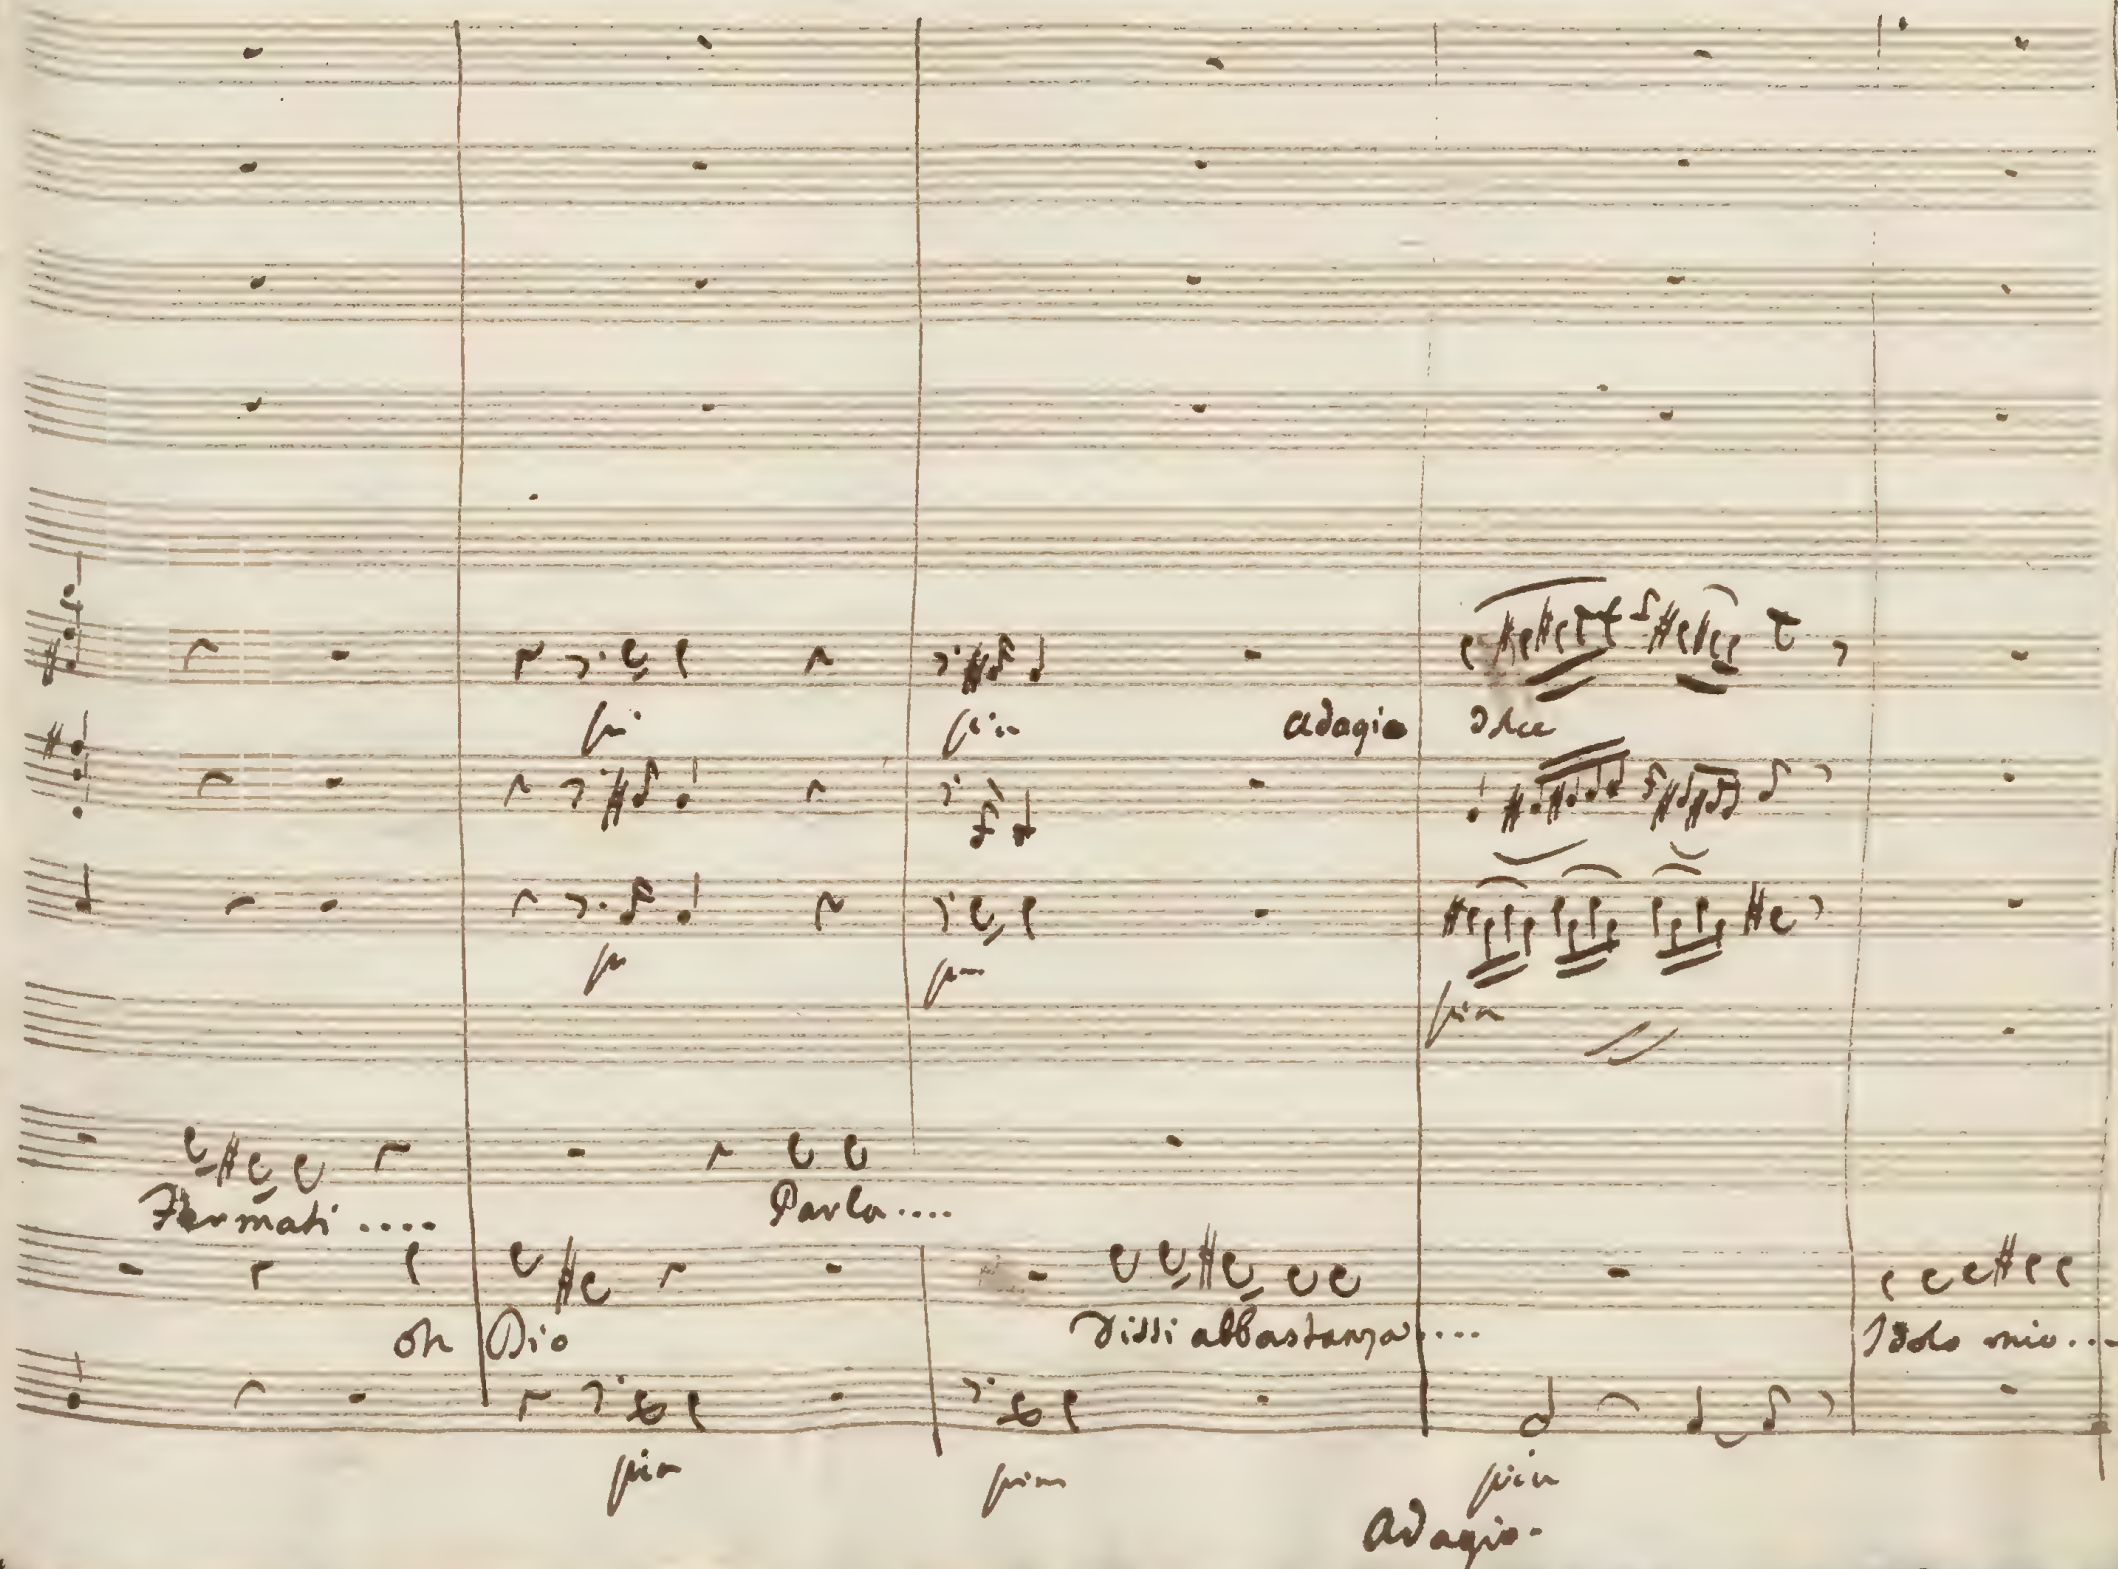 pi pia Adagio dolce
pi pia
pia
Fermati .... Parla ....
oh Dio Dissi abbastanza .... Idolo mio ...
pia pia pia
Adagio.